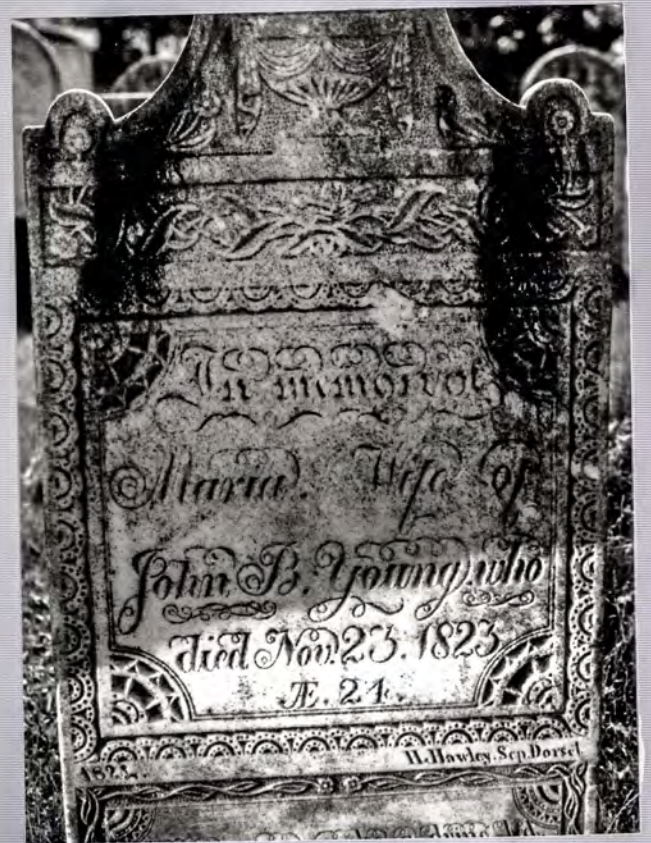 In memory of
Maria. Wife of
John B. Young, who
died Nov. 23. 1823
Æ. 24.
H. Hawley. Scp. Dorset